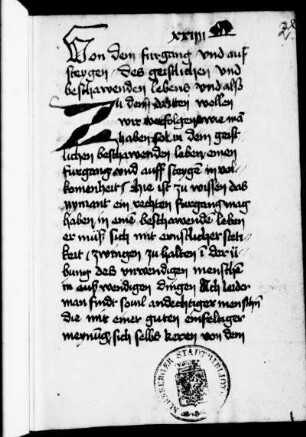 xxiiii
Von dem furgang vnd auf
steygen des geistlichen vnd
beschawenden lebens vnd alß
Zu dem dritten wollen
wir verfolgen wie man
haben sol in dem geist
lichen beschawenden leben einen
furgang vnd auff steygen in vol
komenheit Hie ist zu wissen das
nymant ein rechten furgang mag
haben in eine beschawende leben
er muß sich mit ernstlicher steti
keit zwingen zu halten i der ü
bung des vnwendigen menschen
in auß wendigen dingen Ach leider
man findt souil andechtiger menschen
die mit einer guten einfeltiger
meynung sich selbs keren von dem
STADTBIBLIOTHEK